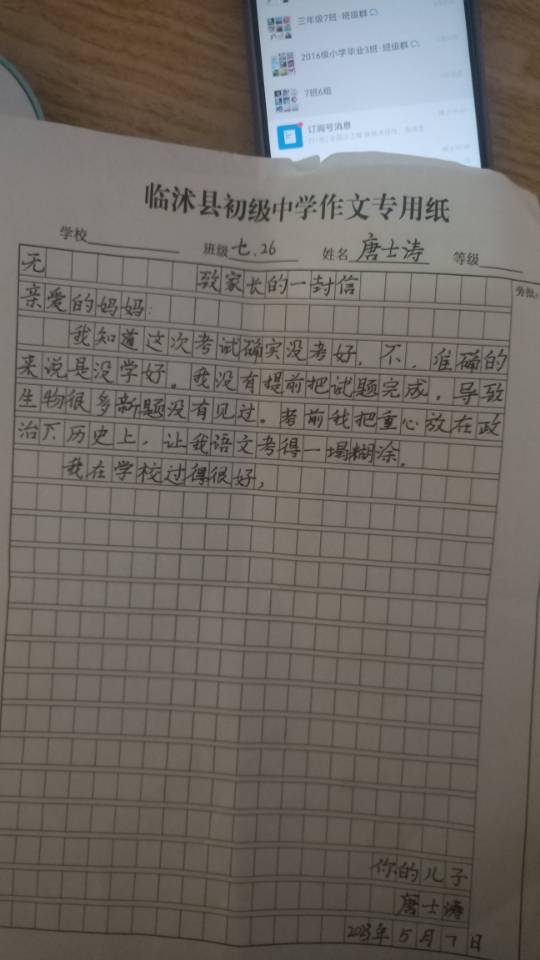 三年级7班 班级群
2016级小学毕业3班 班级群
7班6组
订阅号消息
临沭县初级中学作文专用纸
学校 班级 七.26 姓名 唐士涛 等级
无 致家长的一封信
亲爱的妈妈:
我知道这次考试确实没考好,不,准确的
来说是没学好。我没有提前把试题完成,导致
生物很多新题没有见过。考前我把重心放在政
治下历史上,让我语文考得一塌糊涂。
我在学校过得很好,
你的儿子
唐士涛
2023年5月7日